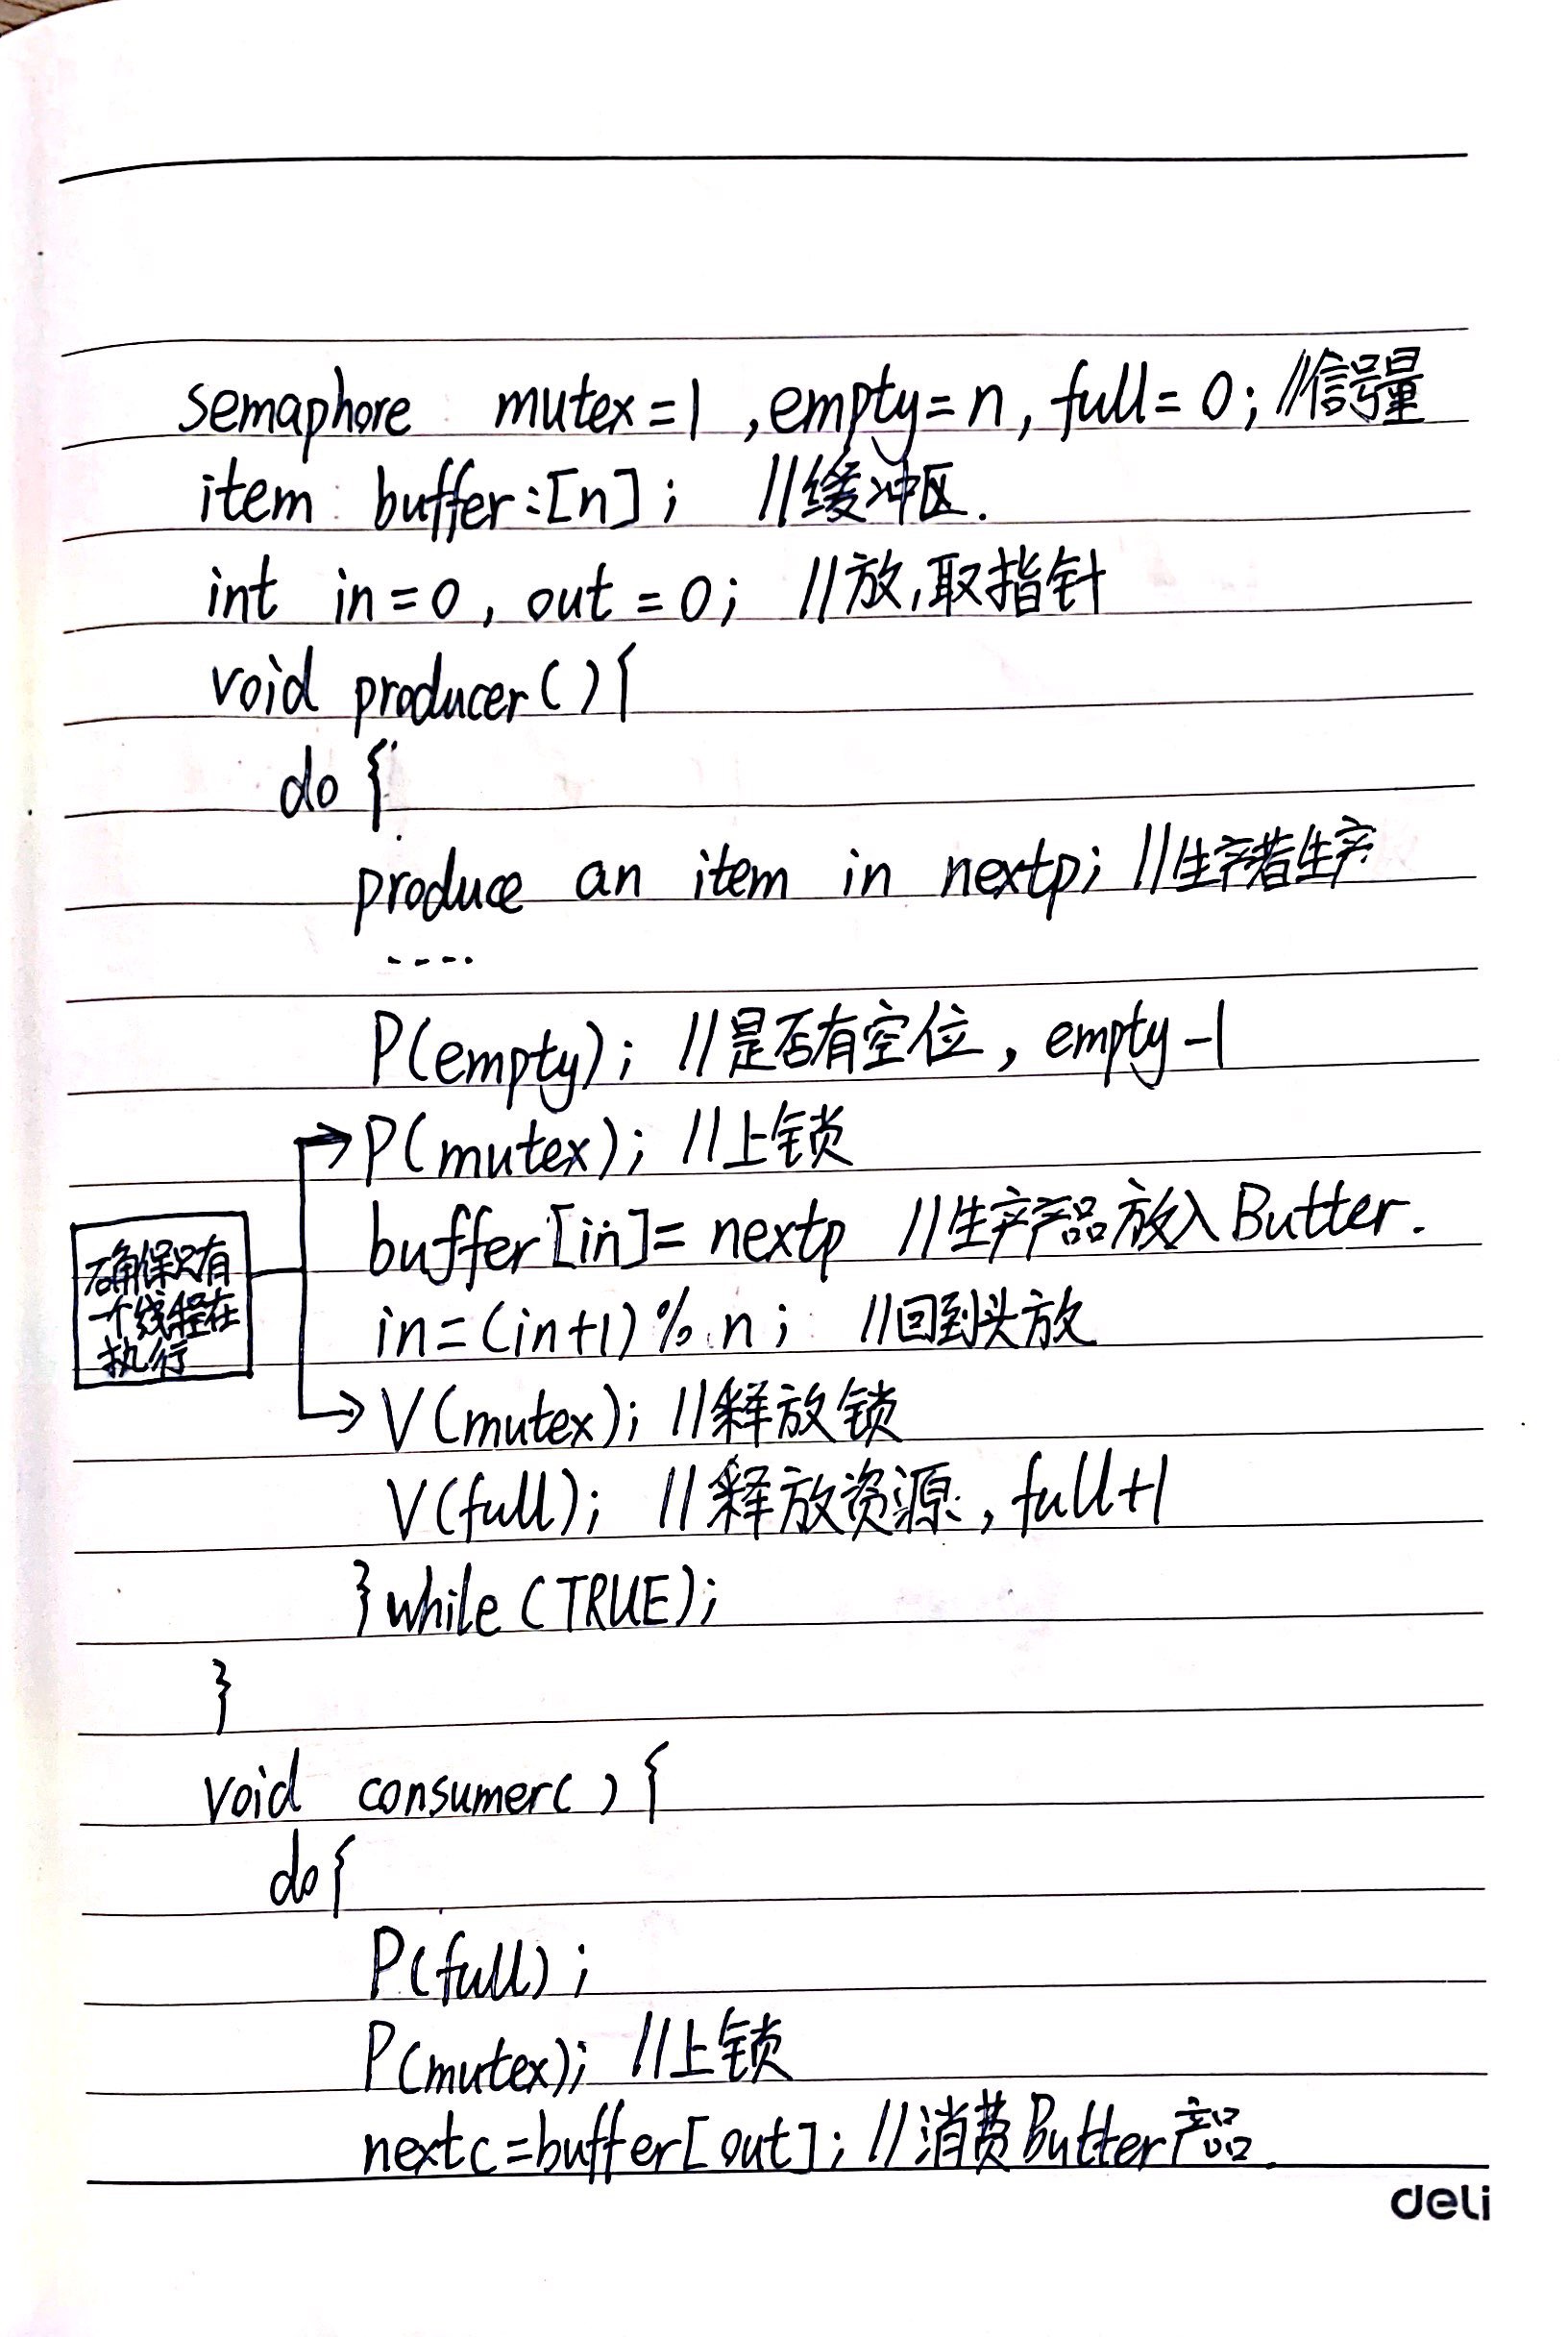 semaphore mutex=1 ,empty=n, full=0; //信号量
item buffer:[n]; //缓冲区.
int in=0, out=0; //放,取指针
void producer(){
do {
produce an item in nextp; //生产者生产
....
P(empty); //是否有空位, empty-1
P(mutex); //上锁
buffer[in]= nextp //生产产品放入Butter.
确保只有
一个线程在
执行
in=(in+1)%n; //回到头放
V(mutex); //释放锁
V(full); //释放资源, full+1
}while(TRUE);
}
void consumer( ){
do{
P(full);
P(mutex); //上锁
nextc=buffer[out]; //消费Butter产品.
deli